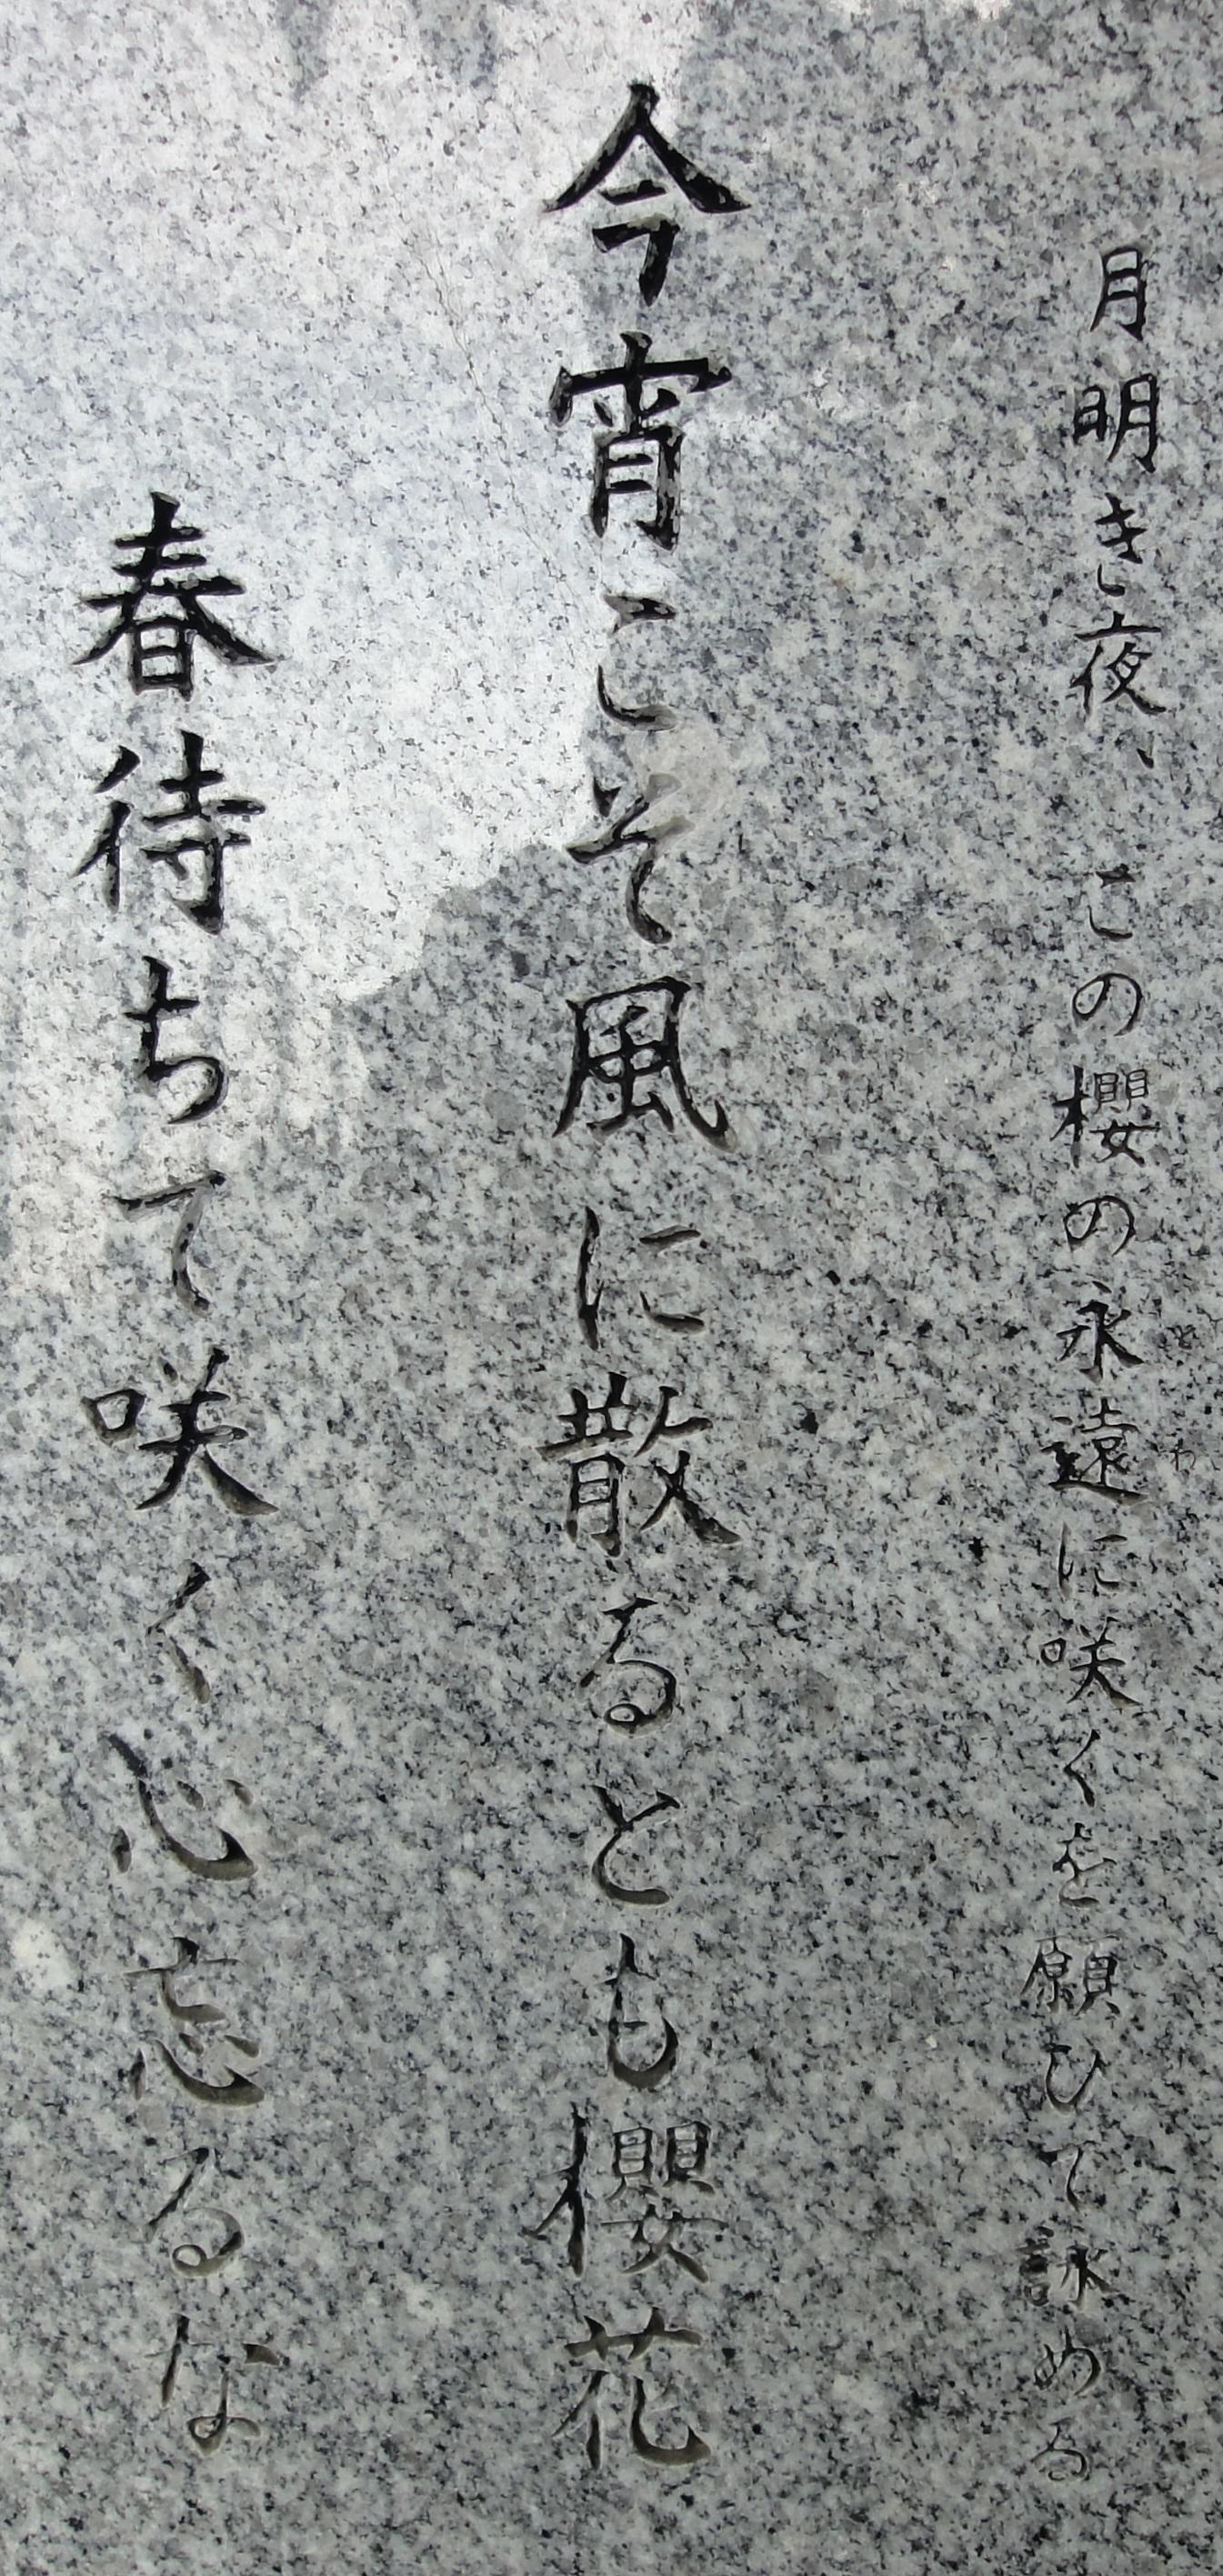 月明き夜、この櫻の永遠に咲くを願ひて詠める
とわ
今宵こそ風に散るとも櫻花
春待ちて咲く心忘るな